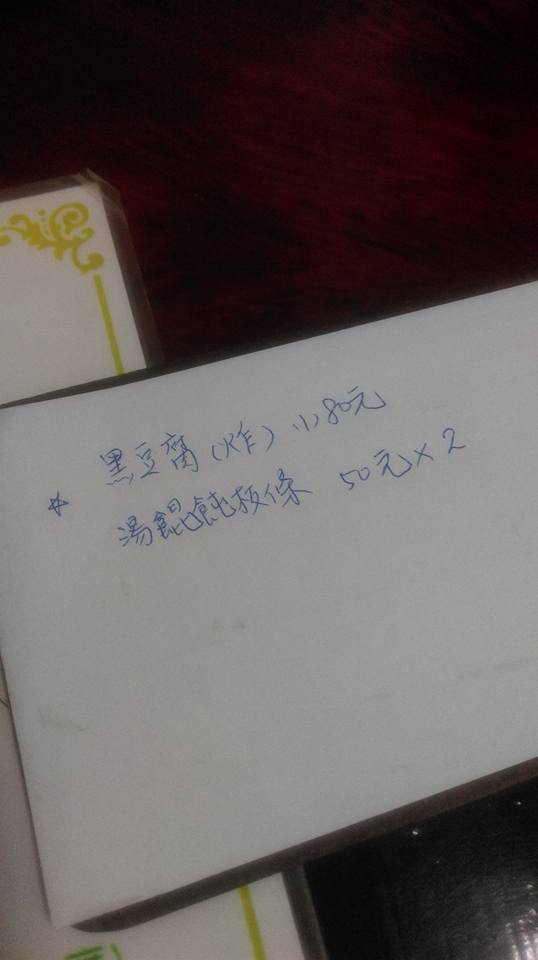 黑豆腐(炸) 小80元
* 湯餛飩板條 50元×2